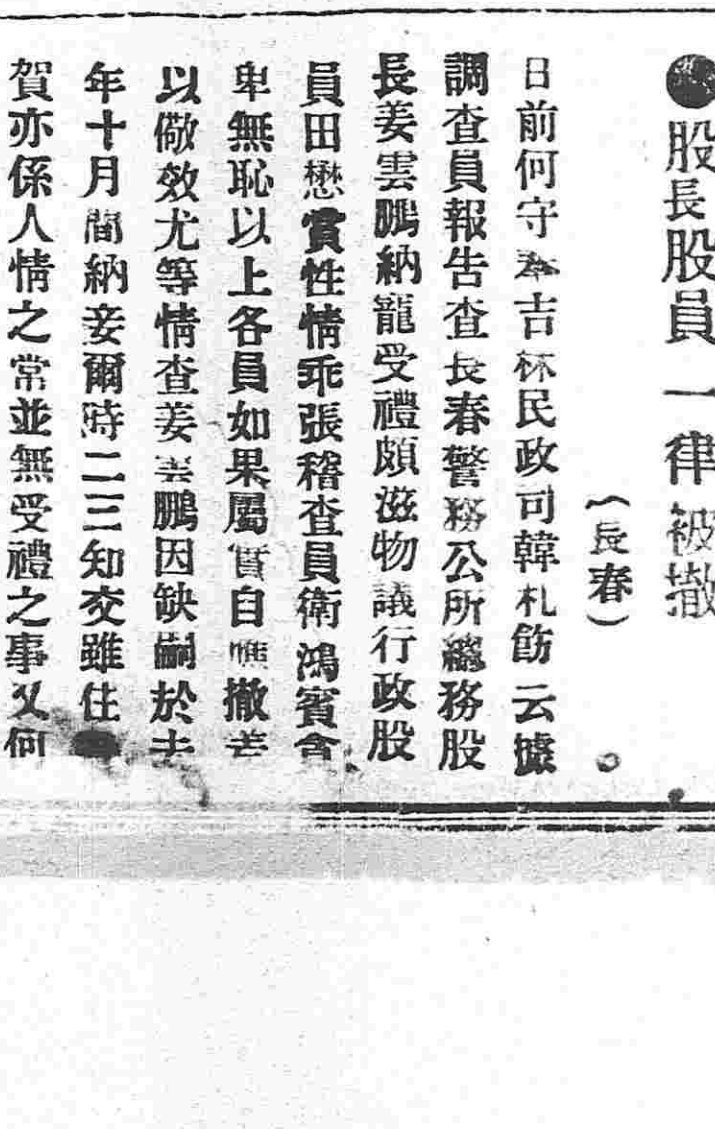 ●股長股員一律被撤
（長春）
日前何守奉吉林民政司韓札飭云據
調查員報告查長春警務公所總務股
長姜雲鵬納寵受禮頗滋物議行政股
員田懋賞性情乖張稽查員衛鴻賓含
卑無恥以上各員如果屬實自應撤差
以儆效尤等情查姜雲鵬因缺嗣於去
年十月間納妾爾時二三知交雖往
賀亦係人情之常並無受禮之事又何